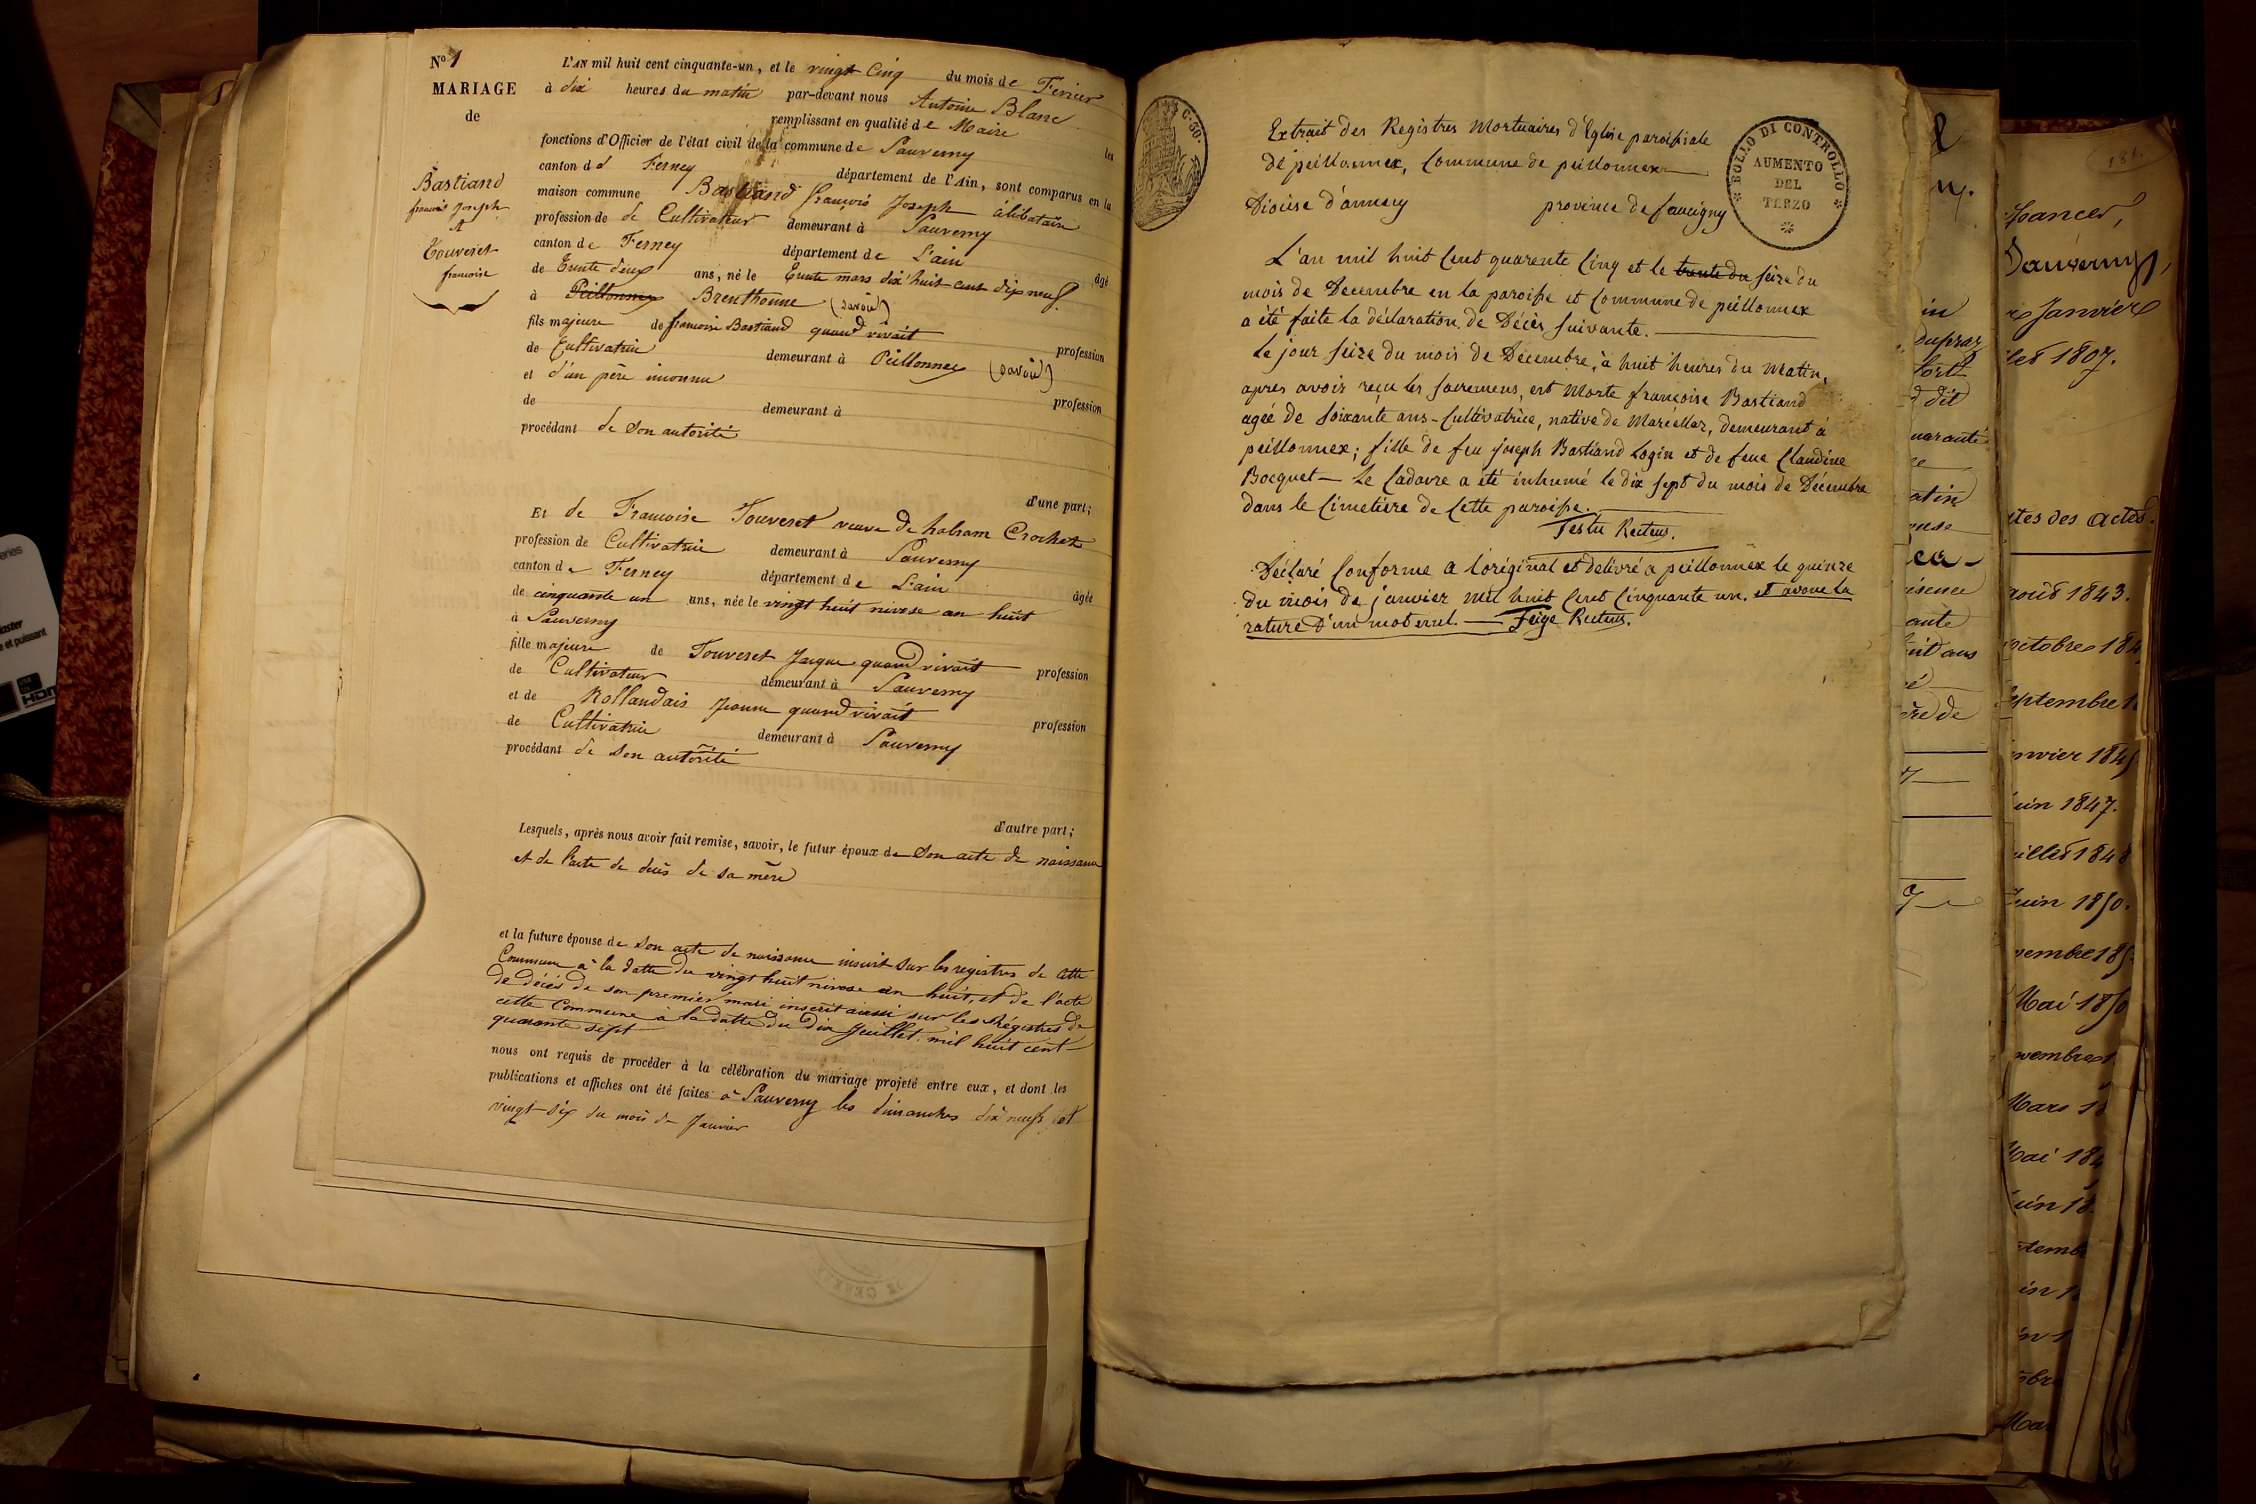 No 1
MARIAGE
de
Bastiand
françois Joseph
et
Touveret
françoise
L'AN mil huit cent cinquante-un, et le vingt Cinq du mois de Fevrier
à dix heures du matin par-devant nous Antoine Blanc
remplissant en qualité de Maire les
fonctions d'Officier de l'état civil de la commune de Sauverny
canton d Ferney département de l'Ain, sont comparus en la
maison commune Bastiand françois Joseph célibataire
profession de de Cultivateur demeurant à Sauverny
canton de Ferney département de L'ain âgé
de Trente deux ans, né le Trente mars dix huit cent dix neuf
à Peillonnex Brenthonne (Savoie)
fils majeur de françoise Bastiand quand vivait profession
de Cultivatrice demeurant à Peillonnex (Savoie)
et d'un père inconnu profession
de demeurant à
procédant de son autorité
d'une part;
Et de Francoise Touveret veuve de habram Crochet
profession de Cultivatrice demeurant à Sauverny
canton de Ferney département de L'ain âgée
de cinquante un ans, née le vingt huit nivose an huit
à Sauverny
fille majeure de Touveret Jaque quand vivait profession
de Cultivateur demeurant à Sauverny
et de Rollandais Jeanne quand vivait profession
de Cultivatrice demeurant à Sauverny
procédant de son autorité
d'autre part;
Lesquels, après nous avoir fait remise, savoir, le futur époux de Son acte de naissance
et de l'acte de décès de sa mère
et la future épouse de son acte de naissance inscrit sur les registres de cette
Commune à la datte du vingt huit nivose an huit, et de l'acte
de décès de son premier mari inscrit aussi sur les Régistres de
cette Commune à la datte du dix Juillet mil huit cent
quarante sept
nous ont requis de procéder à la célébration du mariage projeté entre eux, et dont les
publications et affiches ont été faites à Sauverny les dimanches dix neuf et
vingt-six du mois de Janvier
C. 30.
BOLLO DI CONTROLLO
AUMENTO
DEL
TERZO
Extrait des Registres Mortuaires d'Eglise paroissiale
de peillonnex, Commune de peillonnex
Diocèse d'annecy province de faucigny
L'an mil huit Cent quarente Cinq et le trente du seize du
mois de Decembre en la paroisse et Commune de peillonnex
a été faite la déclaration de Décès suivante.
Le jour seize du mois de Décembre, à huit heures du Matin,
apres avoir reçu les sacremens, est Morte françoise Bastiand
agée de soixante ans - Cultivatrice, native de Marcellaz, demeurant à
peillonnex; fille de feu joseph Bastiand Login et de feue Claudine
Bocquet - Le Cadavre a été inhumé le dix sept du mois de Décembre
dans le Cimetière de Cette paroisse.
Testu Recteur.
Déclaré Conforme a l'original et délivré a peillonnex le quinze
du mois de janvier mil huit Cent Cinquante un. et avoue la
rature d'un mot nul. - Feige Recteur.
181.
Sauverny,
Janvier
1807.
dupraz
dit
actes des actes.
août 1843.
octobre 184
septembre 1
janvier 1845
Juin 1847.
Juillet 1848
Juin 1850.
Mai 1850
Mars 1
Mai 184